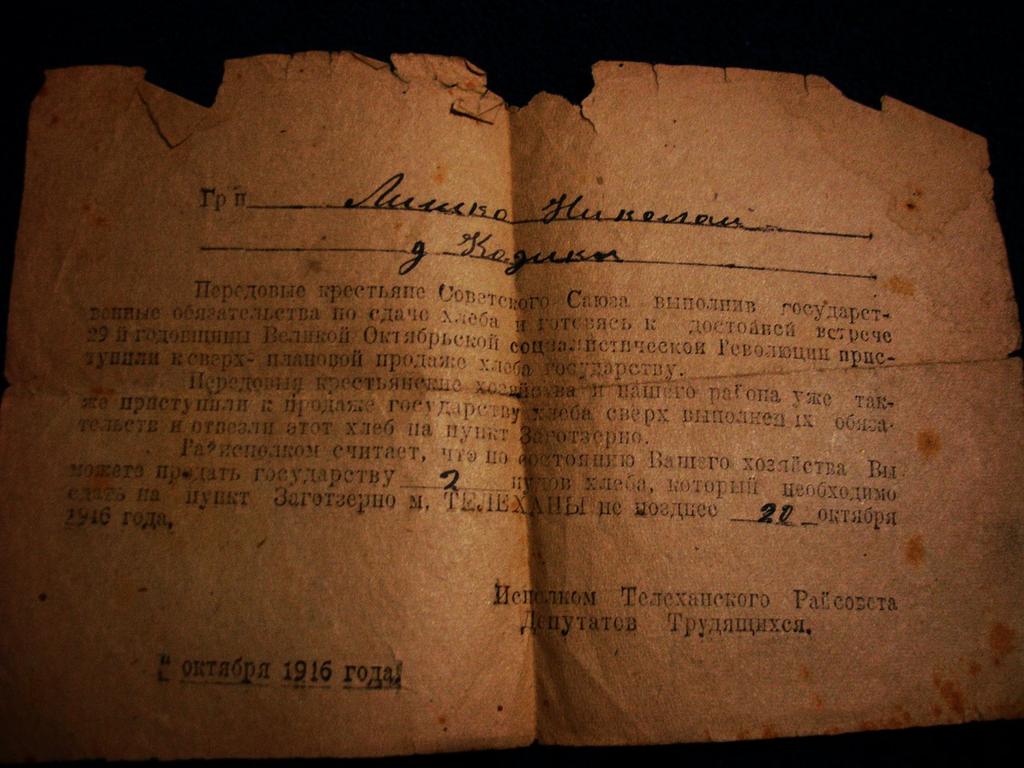 Гр н Лишко Николай
д Кадики
Передовые крестьяне Советского Союза выполнив государст-
венные обязательства по сдаче хлеба и готовясь к достойней встрече
29 й годовщины Великой Октябрьской социалистической Революции прис-
тупили к сверх- плановой продаже хлеба государству.
Передовыя крестьянские хозяйства и нашего района уже так-
же приступили к продаже государству хлеба сверх выполнен их обяза-
тельств и отвезли этот хлеб на пункт Заготзерно.
Райисполком считает, что по состоянию Вашего хозяйства Вы
можете продать государству 2 пудов хлеба, который необходимо
сдать на пункт Заготзерно м. ТЕЛЕХАНЫ не позднее 20 октября
1916 года.
Исполком Телеханского Райсовета
Депутатов Трудящихся.
" октября 1916 года.